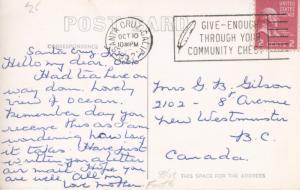 POST CARD
SANTA CRUZ, CALIF.
OCT 10
10³⁰PM
GIVE-ENOUGH
THROUGH YOUR
COMMUNITY CHEST
CORRESPONDENCE
Santa Cruz
Hello my dear. Oct 10
Had tea here on
way down. Lovely
view of ocean.
Remember day you
receive this as I am
wondering how long
it takes. Have just
written you a letter
air mail. Hope you
are well. All my
love Mother
Mrs G B Gilson
2102 - 8th Avenue
New Westminster
B.C.
Canada.
THIS SPACE FOR THE ADDRESS